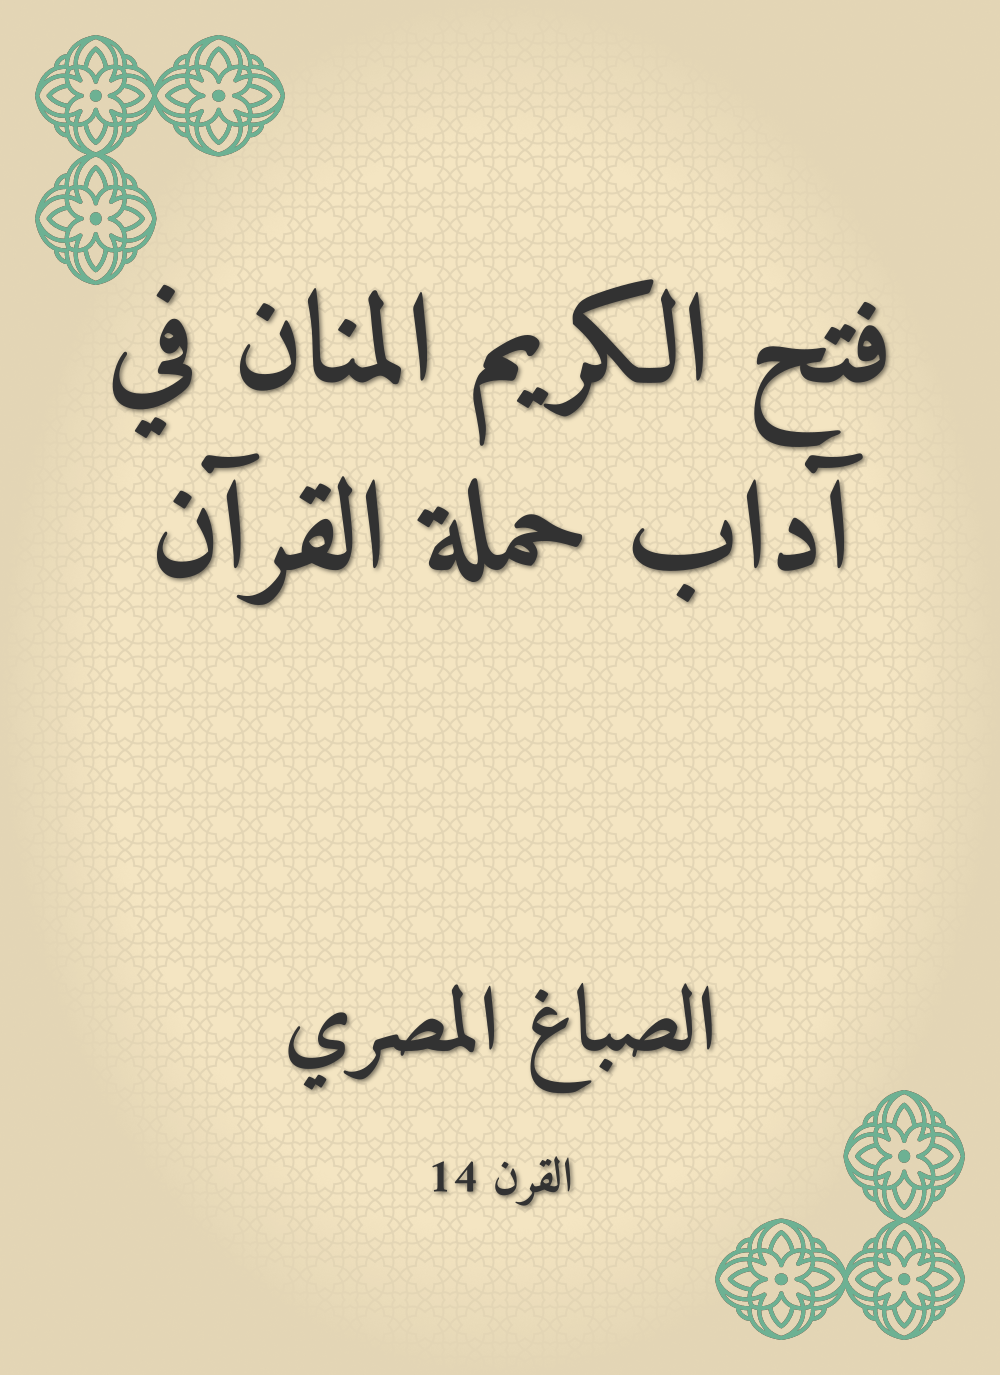 فتح الكريم المنان في
آداب حملة القرآن
الصباغ المصري
القرن 14